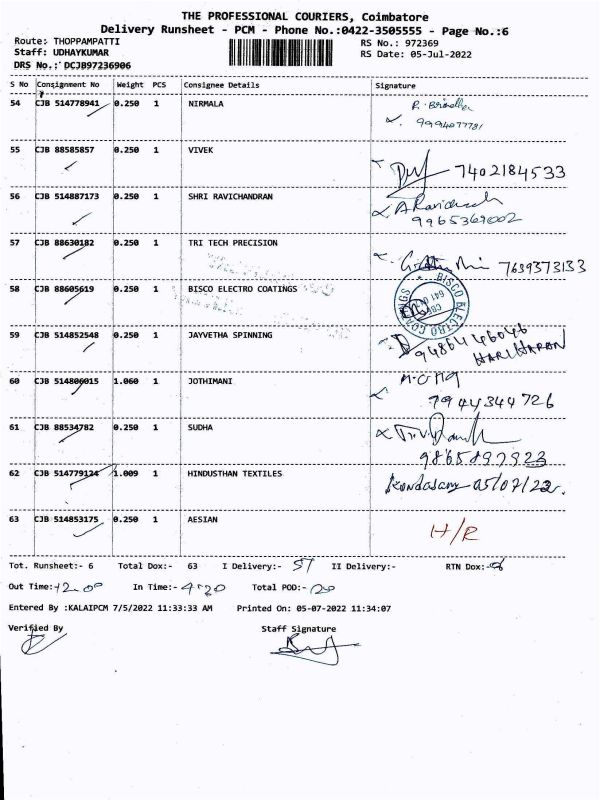 THE PROFESSIONAL COURIERS, Coimbatore
Delivery Runsheet - PCM - Phone No.:0422-3505555 - Page No.:6
Route: THOPPAMPATTI
RS No.: 972369
Staff: UDHAYKUMAR
RS Date: 05-Jul-2022
DRS No.: DCJB97236906
S No Consignment No Weight PCS Consignee Details Signature
54 CJB 514778941 0.250 1 NIRMALA
9994077781
55 CJB 88585857 0.250 1 VIVEK
7402184533
56 CJB 514887173 0.250 1 SHRI RAVICHANDRAN
9965369002
57 CJB 88630182 0.250 1 TRI TECH PRECISION
7639373133
58 CJB 88605619 0.250 1 BISCO ELECTRO COATINGS
BISCO ELECTRO COATINGS
59 CJB 514852548 0.250 1 JAYVETHA SPINNING
9486446046
HARIHARAN
60 CJB 514806015 1.060 1 JOTHIMANI
7944344726
61 CJB 88534782 0.250 1 SUDHA
9865897923
62 CJB 514779124 1.009 1 HINDUSTHAN TEXTILES
05/07/22.
63 CJB 514853175 0.250 1 AESIAN
H/R
Tot. Runsheet:- 6 Total Dox:- 63 I Delivery:- 57 II Delivery:- RTN Dox:-
Out Time:-12.00 In Time:- 4.20 Total POD:-
Entered By :KALAIPCM 7/5/2022 11:33:33 AM Printed On: 05-07-2022 11:34:07
Verified By Staff Signature